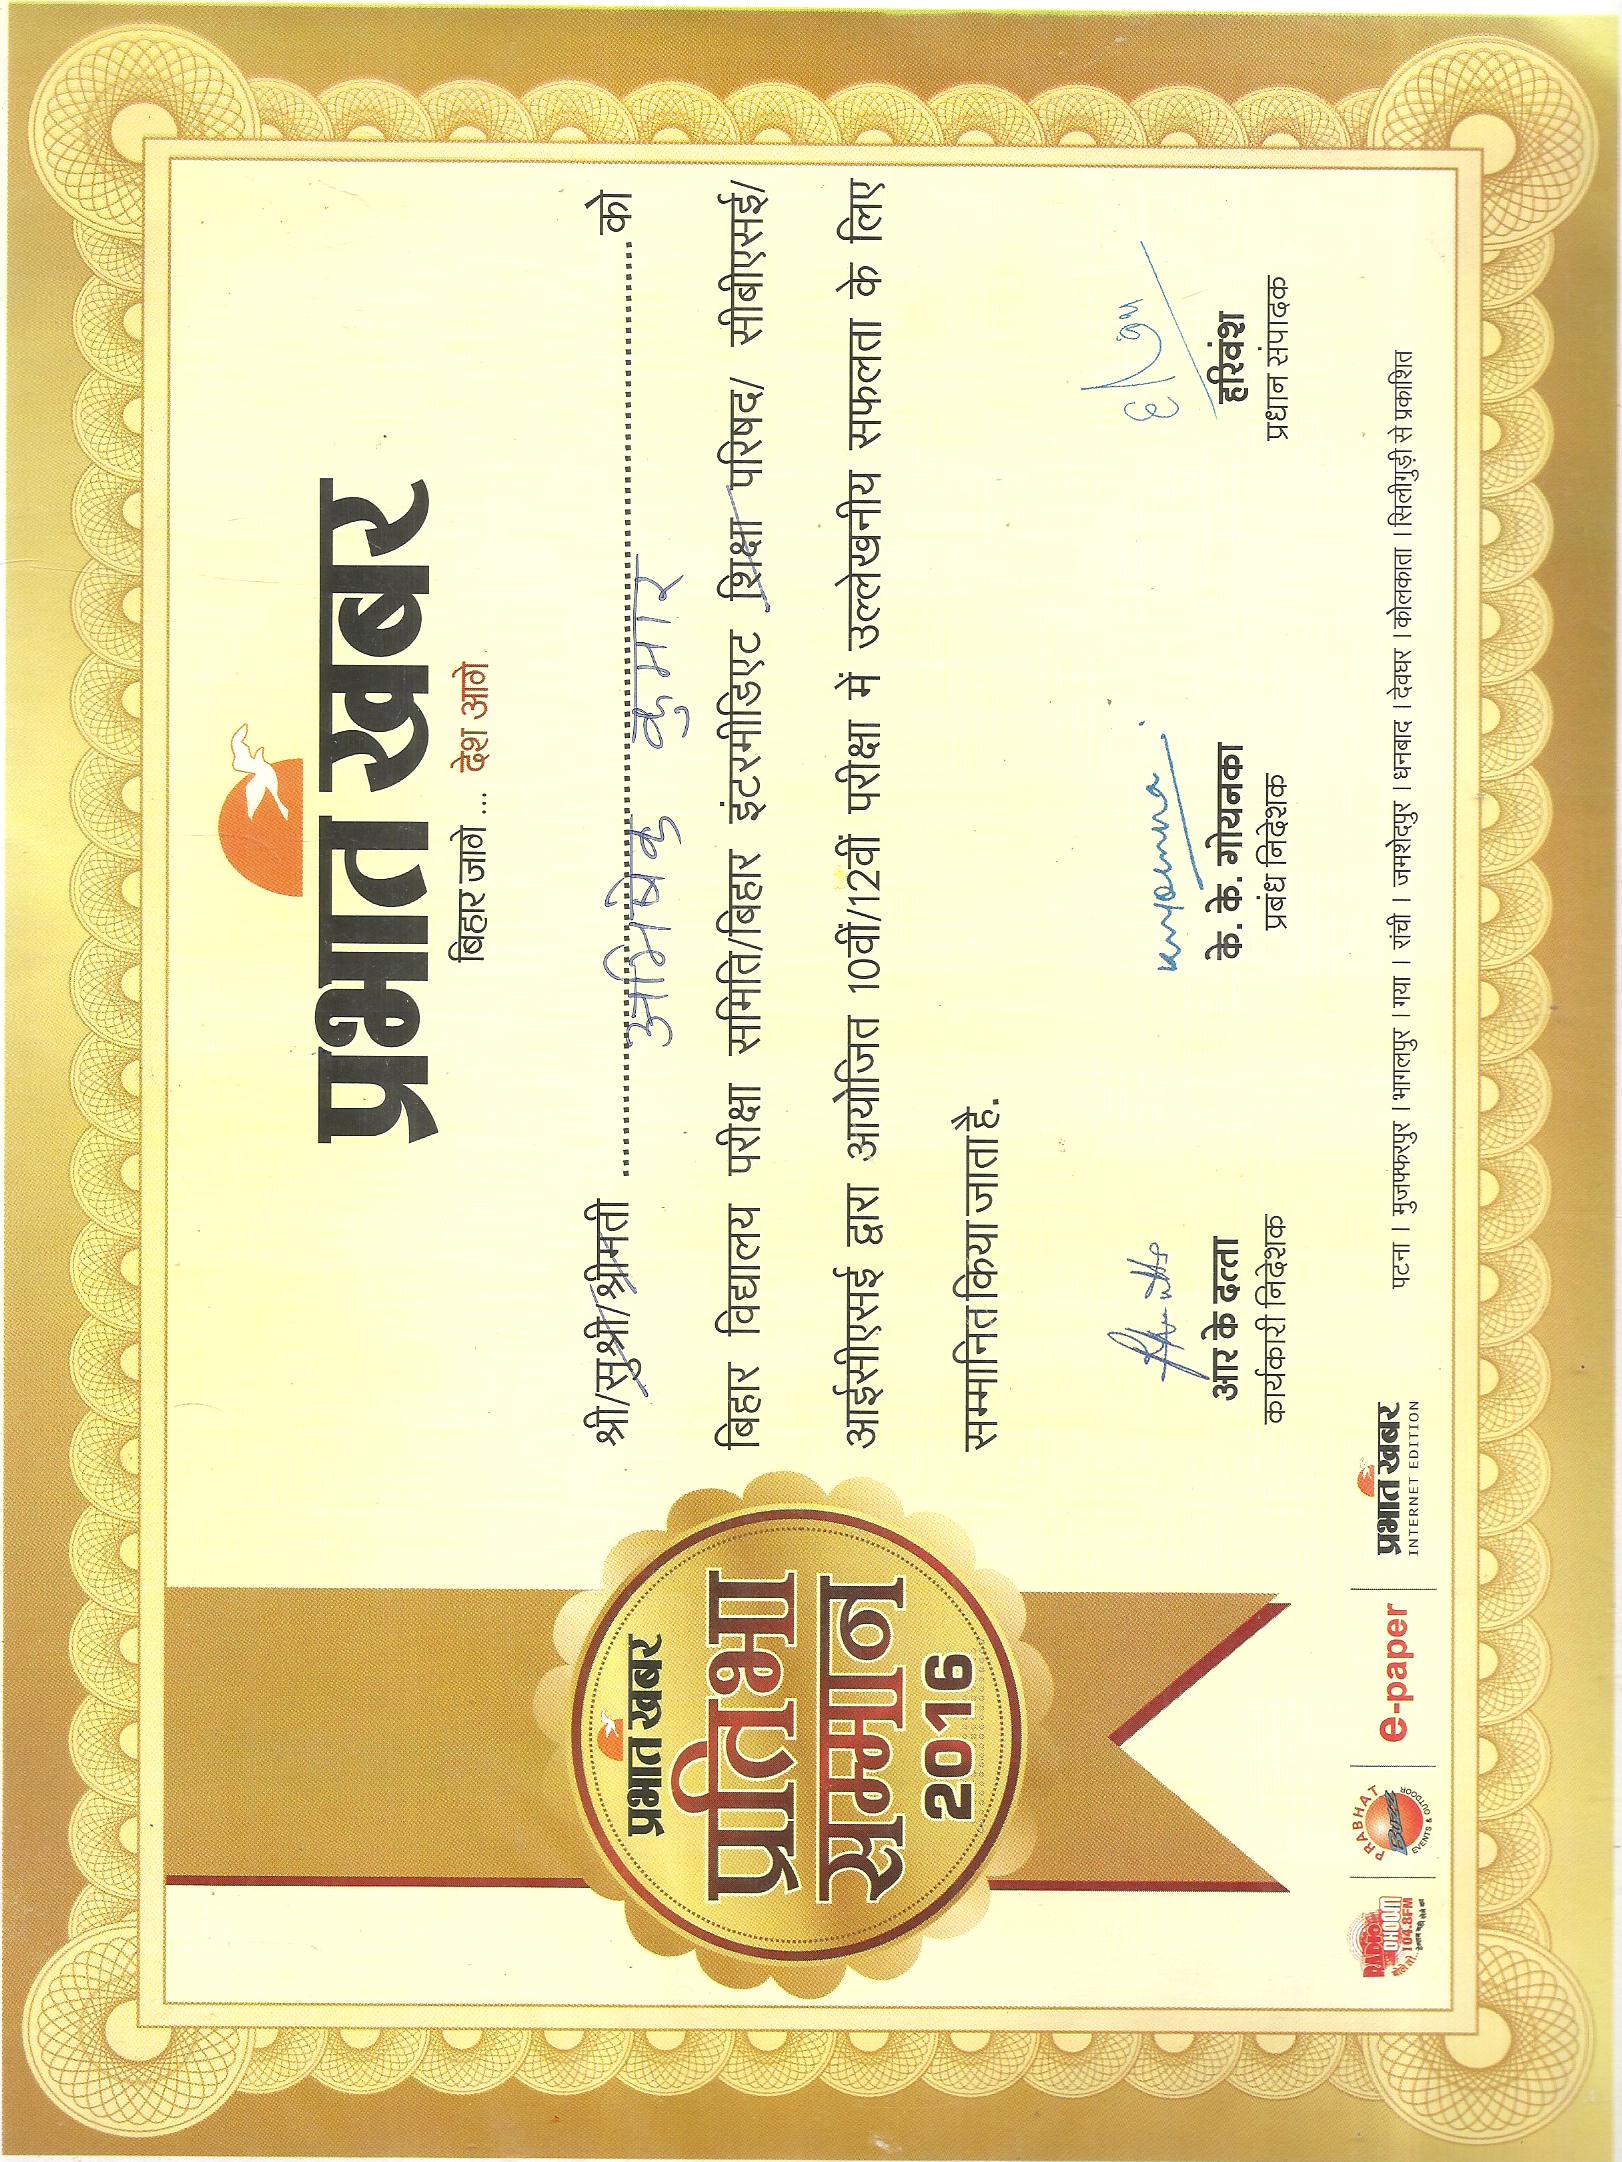 प्रभात खबर
बिहार जागे ... देश आगे
श्री/सुश्री/श्रीमती अभिषेक कुमार को
बिहार विद्यालय परीक्षा समिति/बिहार इंटरमीडिएट शिक्षा परिषद/ सीबीएसई/
आईसीएसई द्वारा आयोजित 10वीं/12वीं परीक्षा में उल्लेखनीय सफलता के लिए
सम्मानित किया जाता है.
प्रभात खबर
प्रतिभा
सम्मान
2016
आर के दत्ता
कार्यकारी निदेशक
के. के. गोयनका
प्रबंध निदेशक
हरिवंश
प्रधान संपादक
RADIO
DHOOM
104.8FM
PRABHAT
BUZZ
EVENTS & OUTDOOR
e-paper
प्रभात खबर
INTERNET EDITION
पटना । मुजफ्फरपुर । भागलपुर । गया । रांची । जमशेदपुर । धनबाद । देवघर । कोलकाता । सिलीगुड़ी से प्रकाशित